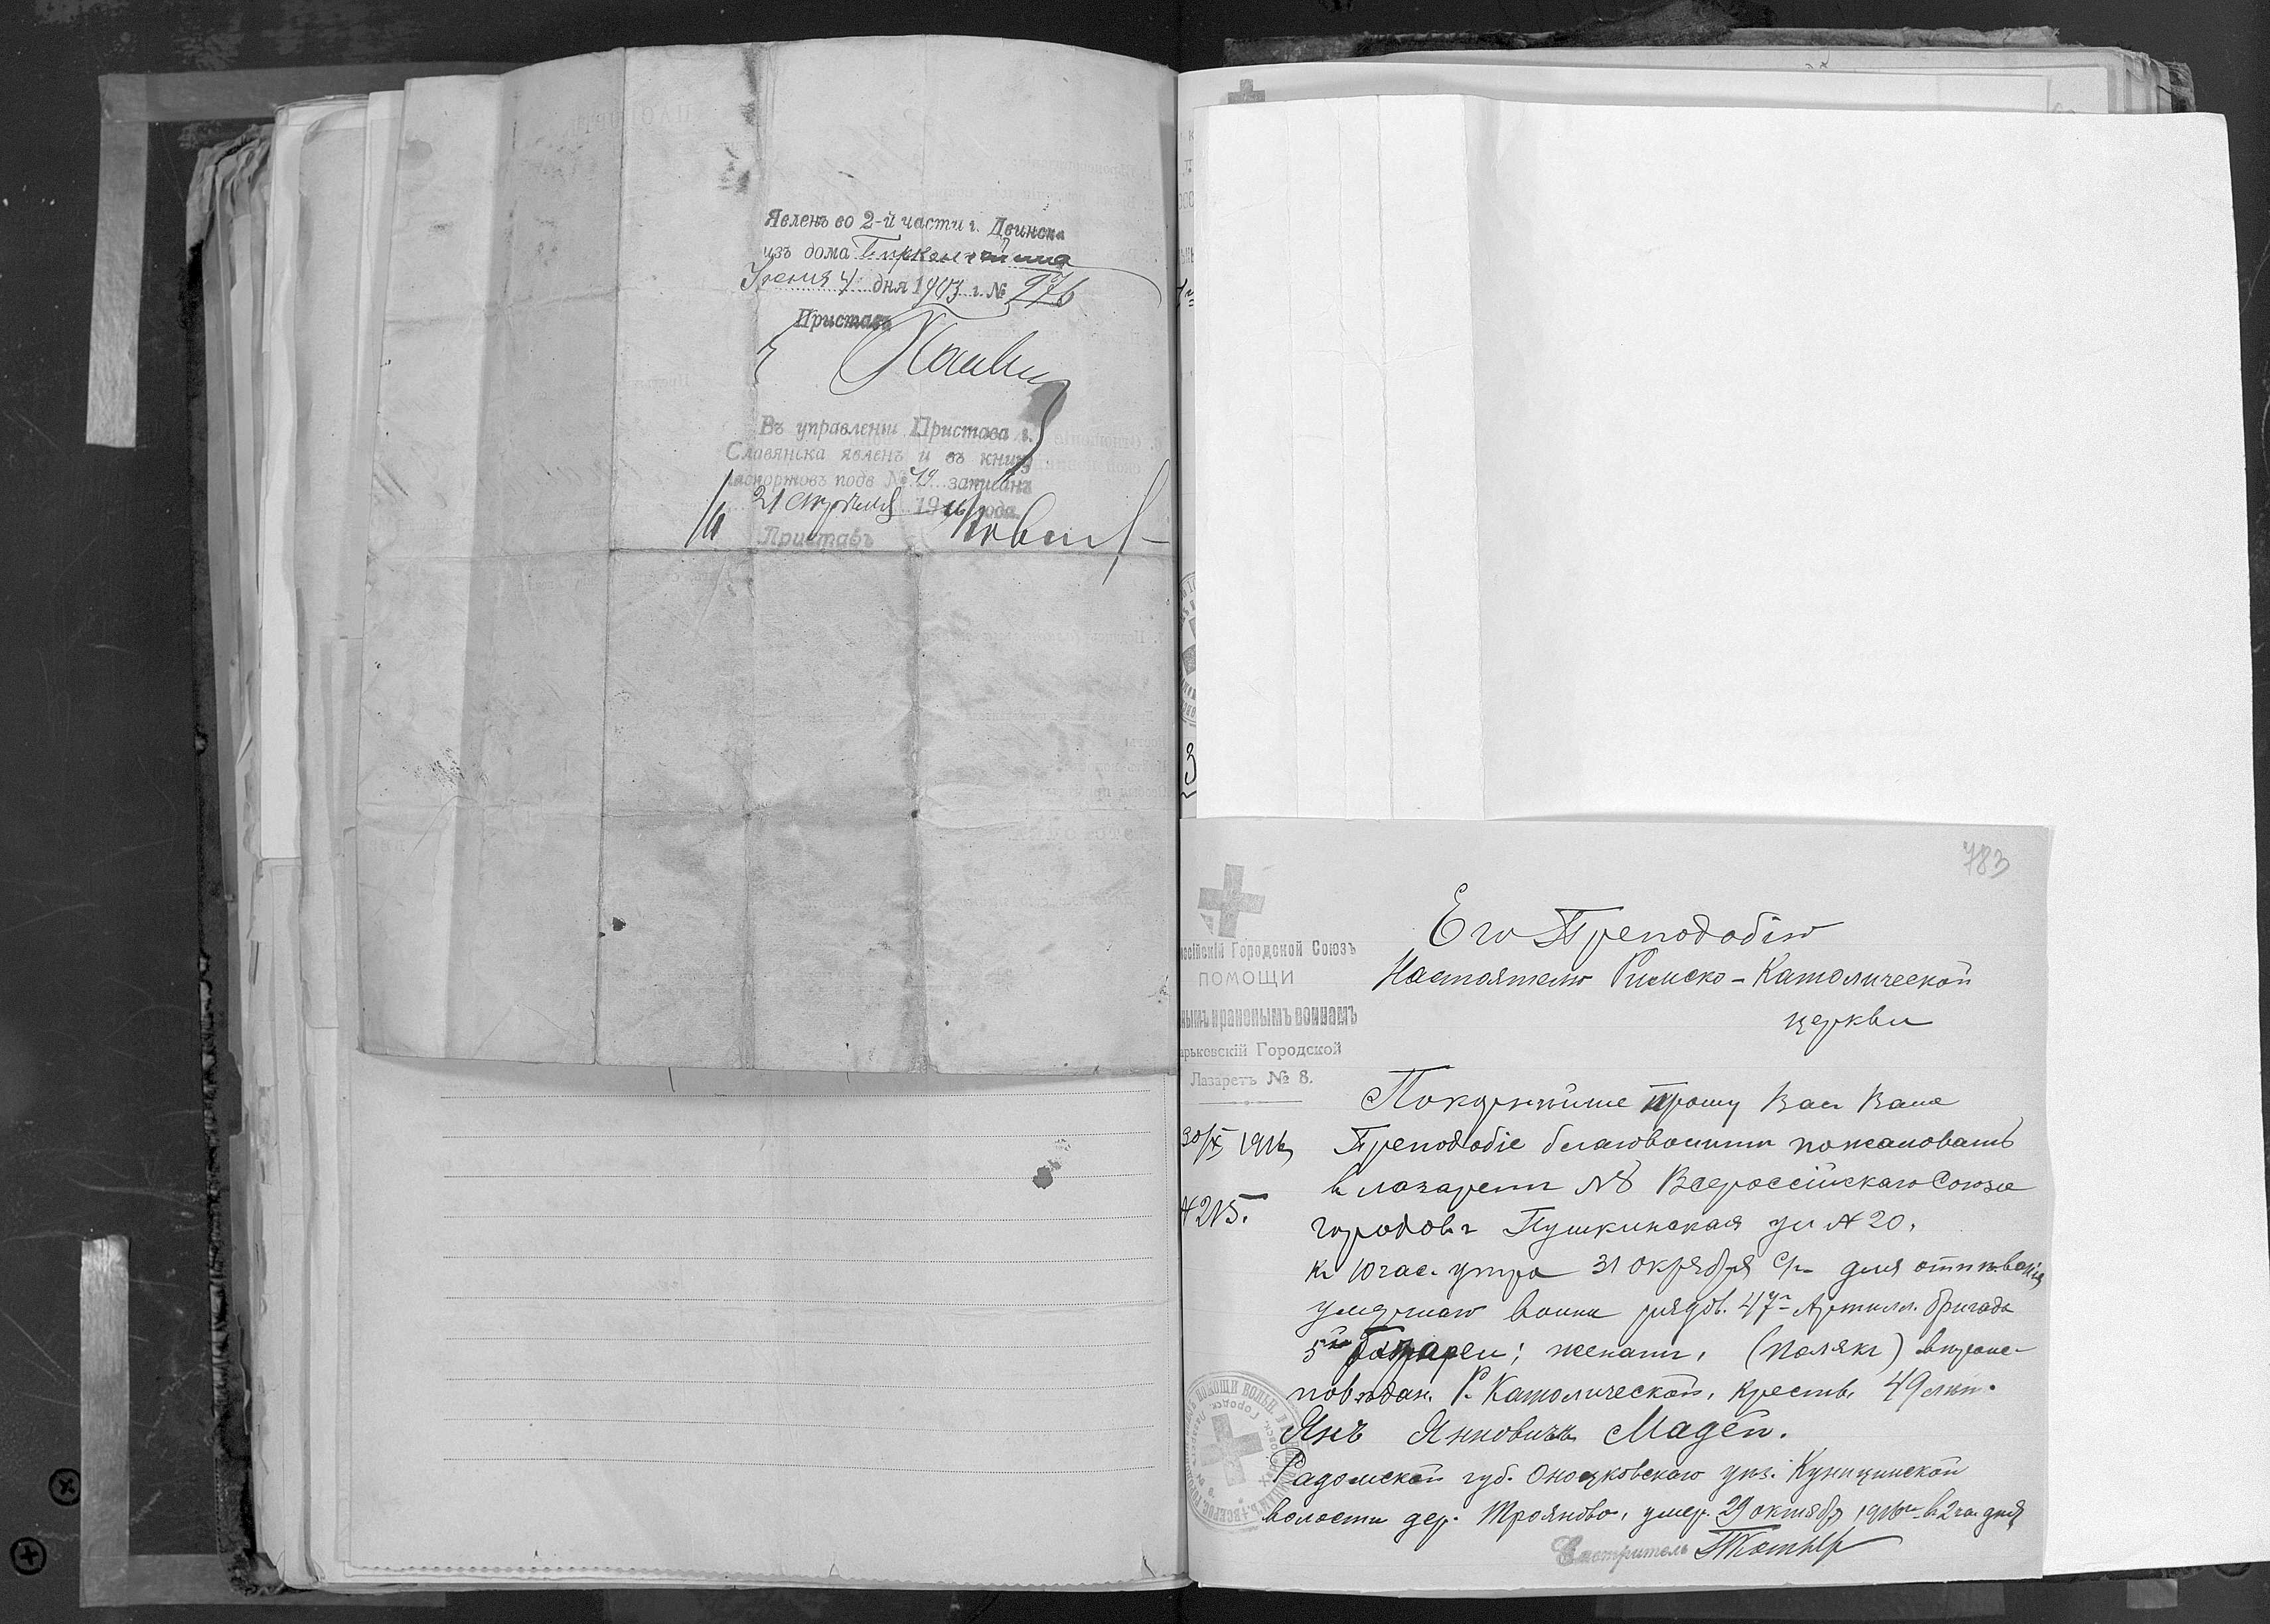 Явленъ во 2-й части г. Двинска
изъ дома
дня 1903 г. № 276
Приставъ
Въ управленіи Пристава г.
Славянска явленъ и въ книгу
паспортовъ подъ № 49 записанъ
21 Апрѣля 1916 года
Приставъ
783
оссійскій Городской Союзъ
ПОМОЩИ
нымъ и раненымъ воинамъ
арьковскій Городской
Лазаретъ № 8.
30/X 1916
№ 215.
Его Преподобію
Настоятелю Римско-Католической
церкви
Покорнѣйше прошу Васъ Ваше
Преподобіе благоволить пожаловать
въ лазаретъ №8 Всероссійскаго Союза
городовъ Пушкинская ул № 20,
къ 10 час. утра 31 октября с/г для отпѣванія
умершаго воина рядов. 47й Артилл. бригады
5й батареи; женатъ, (полякъ) вѣроис-
повѣдан. Р. Католической, крестьян. 49 лѣт.
Янъ Яновичъ Мадей.
Радомской губ. уѣз.
волости дер. Трояново, умер. 29 октябр 1916 г. в 2 ча дня
Смотритель